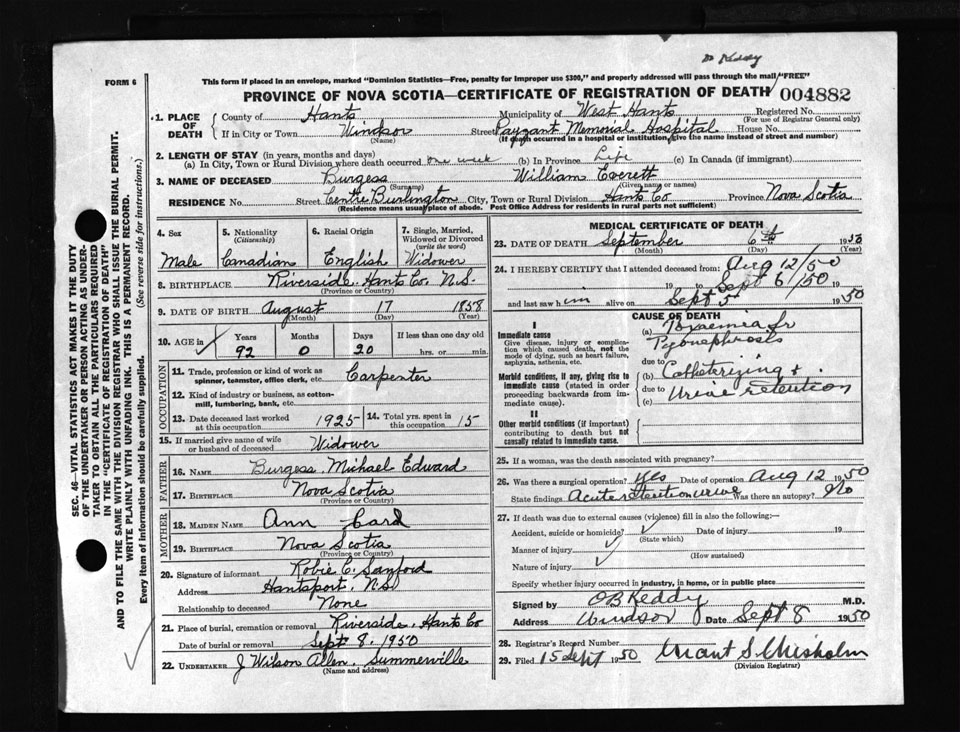 Dr Keddy
FORM 6
This form if placed in an envelope, marked "Dominion Statistics—Free, penalty for improper use $300," and properly addressed will pass through the mail "FREE"
PROVINCE OF NOVA SCOTIA—CERTIFICATE OF REGISTRATION OF DEATH
004882
1. PLACE OF DEATH
County of Hants Municipality of West Hants Registered No.
(For use of Registrar General only)
If in City or Town Windsor Street Payzant Memorial Hospital House No.
(Name) (If death occurred in a hospital or institution, give the name instead of street and number)
2. LENGTH OF STAY (in years, months and days)
(a) In City, Town or Rural Division where death occurred one week (b) In Province Life (c) In Canada (if immigrant)
3. NAME OF DECEASED Burgess William Everett
(Surname) (Given name or names)
RESIDENCE No. Street Centre Burlington City, Town or Rural Division Hants Co Province Nova Scotia
(Residence means usual place of abode. Post Office Address for residents in rural parts not sufficient)
4. Sex 5. Nationality (Citizenship) 6. Racial Origin 7. Single, Married, Widowed or Divorced (write the word)
Male Canadian English Widower
8. BIRTHPLACE Riverside, Hants Co. N.S.
(Province or Country)
9. DATE OF BIRTH August 17 1858
(Month) (Day) (Year)
10. AGE in Years Months Days If less than one day old
92 0 20 hrs. or min.
OCCUPATION
11. Trade, profession or kind of work as spinner, teamster, office clerk, etc. Carpenter
12. Kind of industry or business, as cotton-mill, lumbering, bank, etc.
13. Date deceased last worked at this occupation 1925 14. Total yrs. spent in this occupation 15
15. If married give name of wife or husband of deceased Widower
FATHER
16. NAME Burgess, Michael Edward
17. BIRTHPLACE Nova Scotia
(Province or Country)
MOTHER
18. MAIDEN NAME Ann Card
19. BIRTHPLACE Nova Scotia
(Province or Country)
20. Signature of informant Robie C. Sanford
Address Hantsport, N.S.
Relationship to deceased None
21. Place of burial, cremation or removal Riverside, Hants Co
Date of burial or removal Sept 8, 1950
22. UNDERTAKER J Wilson Allen, Summerville
(Name and address)
MEDICAL CERTIFICATE OF DEATH
23. DATE OF DEATH September 6th 1950
(Month) (Day) (Year)
24. I HEREBY CERTIFY that I attended deceased from: Aug 12/50
19 to Sept 6/50 19
and last saw him alive on Sept 5 1950
CAUSE OF DEATH
I
Immediate cause
Give disease, injury or complication which caused death, not the mode of dying, such as heart failure, asphyxia, asthenia, etc.
(a) Toxaemia fr
Pyonephrosis
due to
Morbid conditions, if any, giving rise to immediate cause (stated in order proceeding backwards from immediate cause).
(b) Catheterizing +
due to Urine retention
(c)
II
Other morbid conditions (if important) contributing to death but not causally related to immediate cause.
25. If a woman, was the death associated with pregnancy?
26. Was there a surgical operation? Yes Date of operation Aug 12 1950
State findings Acute retention urine Was there an autopsy? No
27. If death was due to external causes (violence) fill in also the following:—
Accident, suicide or homicide? Date of injury 19
(State which)
Manner of injury
(How sustained)
Nature of injury
Specify whether injury occurred in industry, in home, or in public place
Signed by O B Keddy M.D.
Address Windsor Date Sept 8 1950
28. Registrar's Record Number
29. Filed 15 Sept 1950 Grant S. Chisholm
(Division Registrar)
SEC. 46—VITAL STATISTICS ACT MAKES IT THE DUTY
OF THE UNDERTAKER OR PERSON ACTING AS UNDERTAKER TO OBTAIN ALL THE PARTICULARS REQUIRED
IN THE "CERTIFICATE OF REGISTRATION OF DEATH"
AND TO FILE THE SAME WITH THE DIVISION REGISTRAR WHO SHALL ISSUE THE BURIAL PERMIT.
WRITE PLAINLY WITH UNFADING INK. THIS IS A PERMANENT RECORD.
Every item of Information should be carefully supplied. (See reverse side for instructions.)